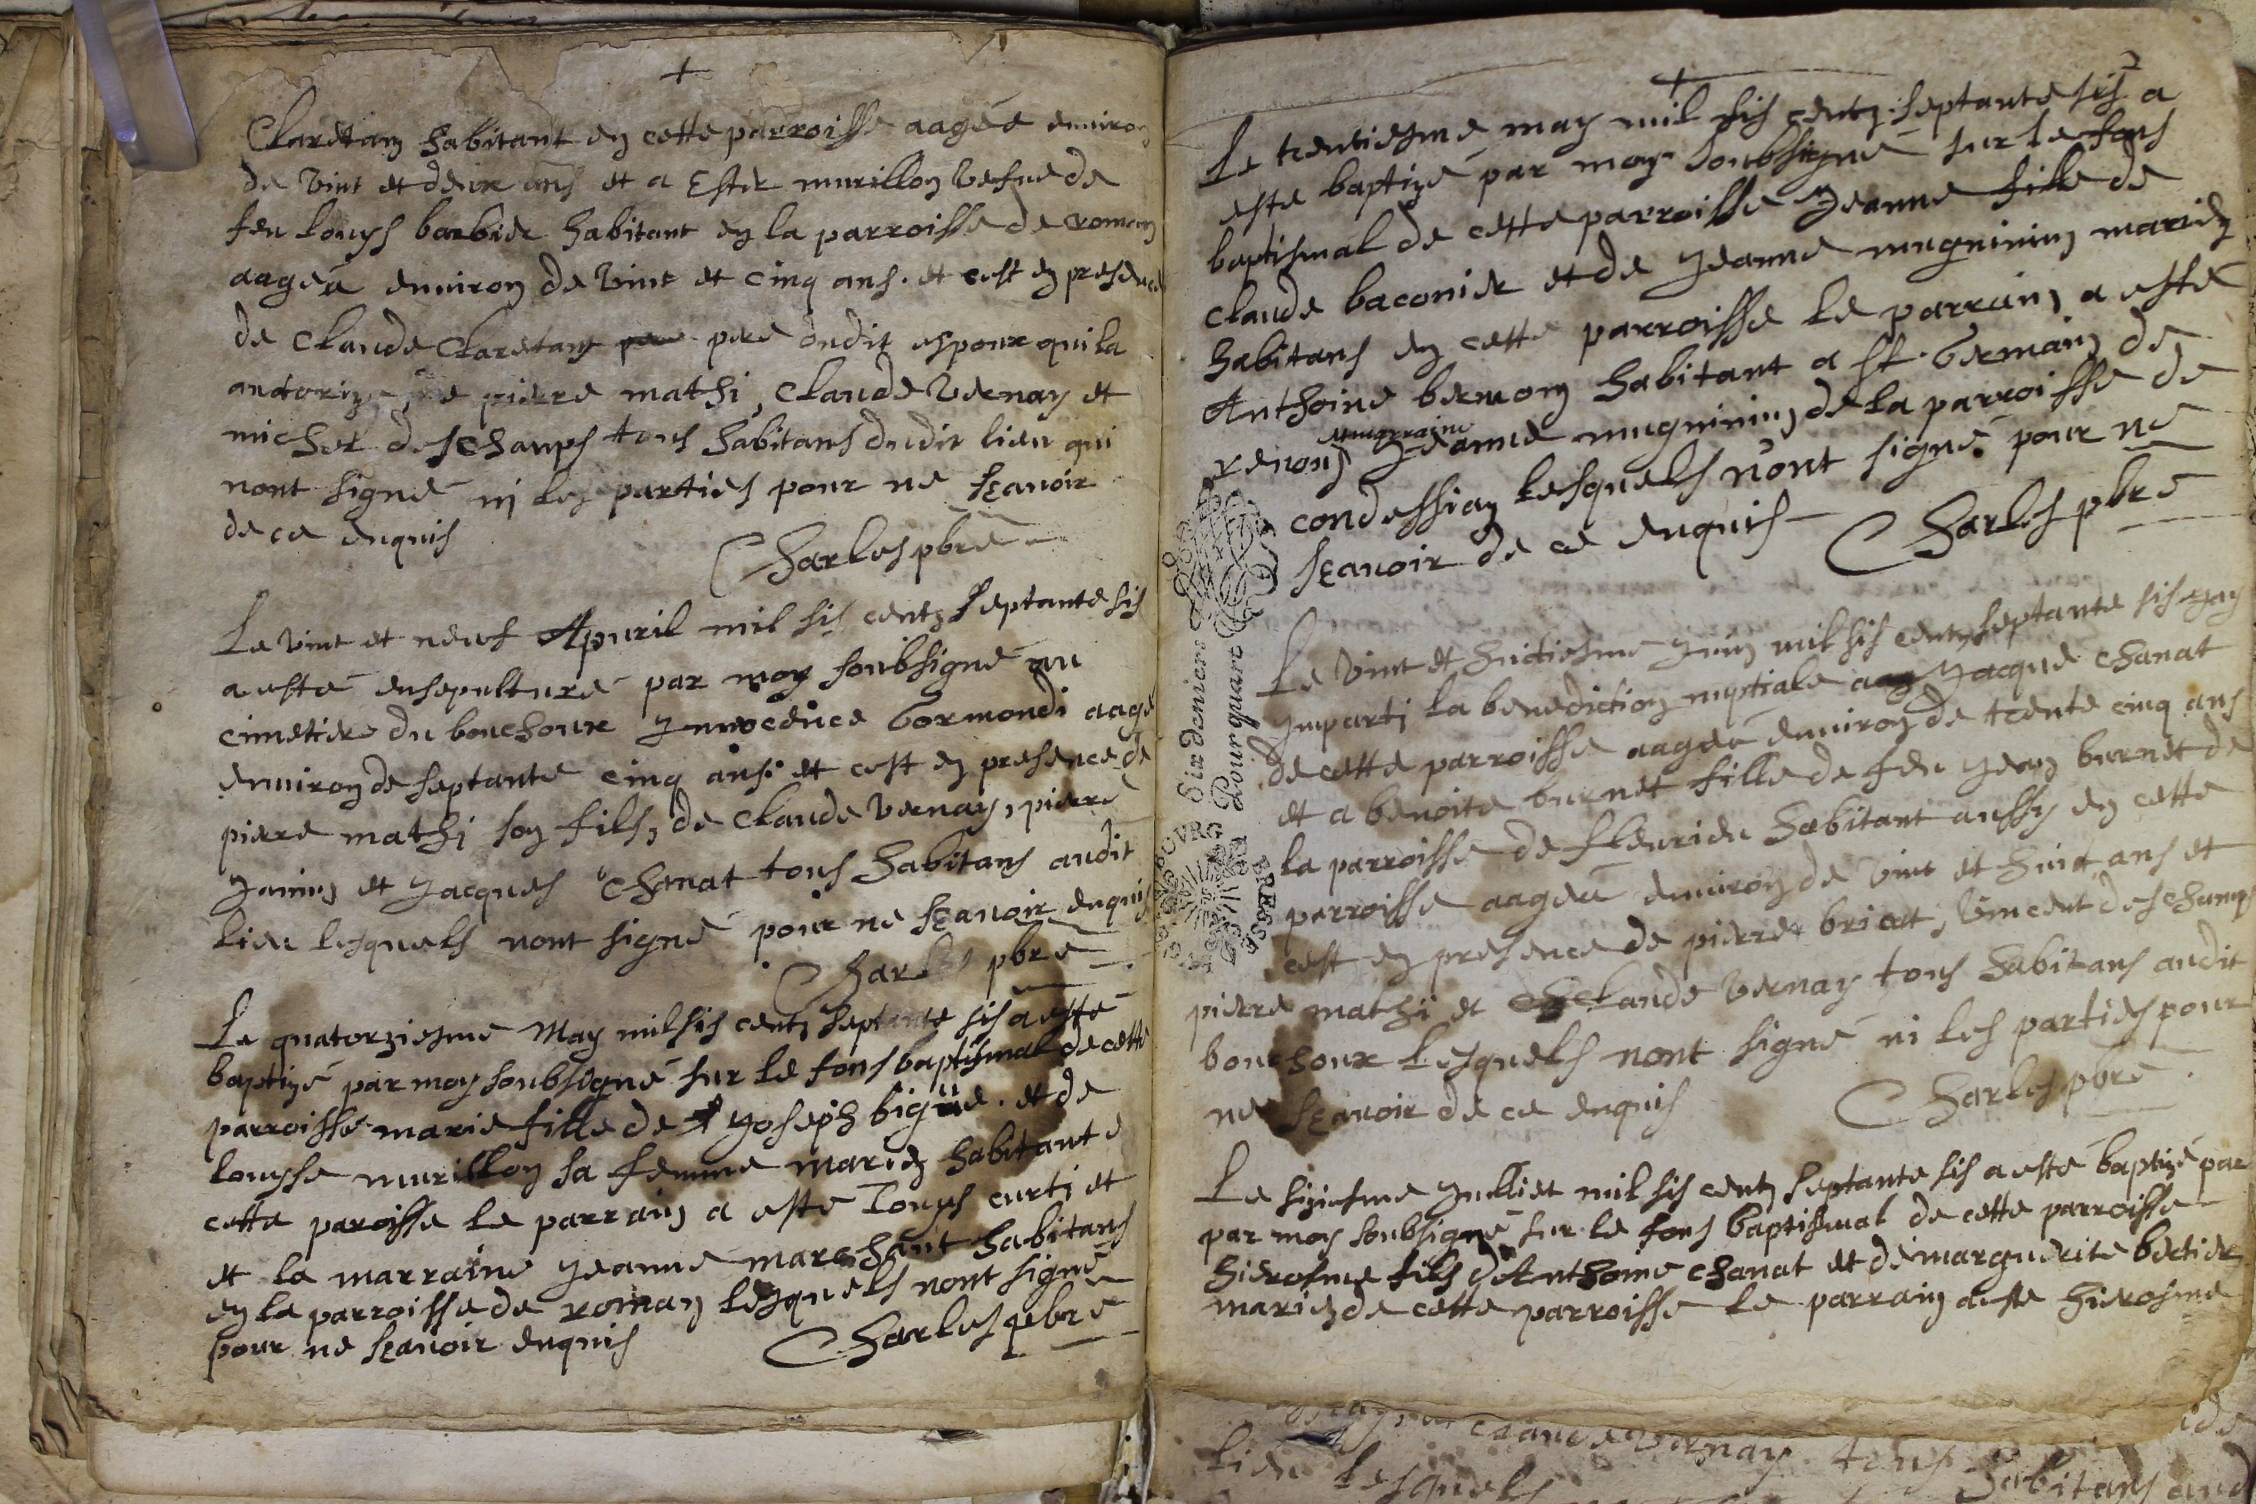 Claretan habitant en cette parroisse aagée environ
de vint et deux ans et a Ester murillon vefue de
feu louys barbier habitant en la parroisse de roman
aagée enuiron de vint et cinq ans. et cest en presence
de Claude Claretan pere dudit espoux qui la
authorizé, de pierre mathi, Claude vernay et
michel deschamps tous habitans dudit lieu qui
nont signé ni les parties pour ne sçauoir
de ce enquis
Charles pbre
Le vint et neuf Apuril mil sis centz septante sis
a esté ensepulturé par moy soubsigné au
cimetiere du bouchoux Innocence Gormondi aagé
enuiron de septante cinq ans. et cest en presence de
pierre mathi son fils, de Claude vernay, pierre
Janin et Jacques Chanat tous habitans audit
lieu lesquels nont signé pour ne sçauoir enquis
Charles pbre
Le quatorziesme May mil sis centz septante sis a esté
baptizé par moy soubsigné sur le fons baptismal de cette
parroisse marie fille de Yoseph bigüe. et de
louyse murillon sa femme mariez habitant e
cette paroisse le parrain a esté Louys curti et
et la marraine Jeanne marchant habitans
en la parroisse de roman lesquels nont signé
pour ne sçauoir enquis
Charles pbre
2
Le trentiesme may mil sis centz septante sis a
esté baptizé par moy soubsigné sur le fons
baptismal de cette parroisse Jeanne fille de
Claude baconier et de Jeanne mugninin mariez
habitans en cette parroisse le parrain a esté
Anthoine bermon habitant a St. Germain de
renon et marraine Jeanne mugninin de la parroisse de
condessian lesquels n'ont signé pour ne
sçauoir de ce enquis
Charles pbre
Six deniers
Pour quart
BOURG
BRESSE
Le vint et huictiesme Juin mil sis centz septante sis jay
Imparti la benediction nuptiale a Jacque chanat
de cette parroisse aagée enuiron de trente cinq ans
et a benoite burnet fille de feu Jean burnet de
la parroisse de fleurieu habitant aussy en cette
parroisse aagée enuiron de vint et huit ans et
cest en presence de pierre briat, vincent deschamps
pierre mathi et Claude vernay tous habitans audit
bouchoux lesquels nont signé ni les parties pour
ne sçauoir de ce enquis
Charles pbre
Le siziesme Julliet mil sis centz septante sis a esté baptizé par
par moy soubsigné sur le fons baptismal de cette parroisse
hierosme fils d'Anthoine chanat et de marguerite bertier
mariez de cette parroisse le parrain a esté hierosme
Claude vernay tous
lieu lesquels habitans aud